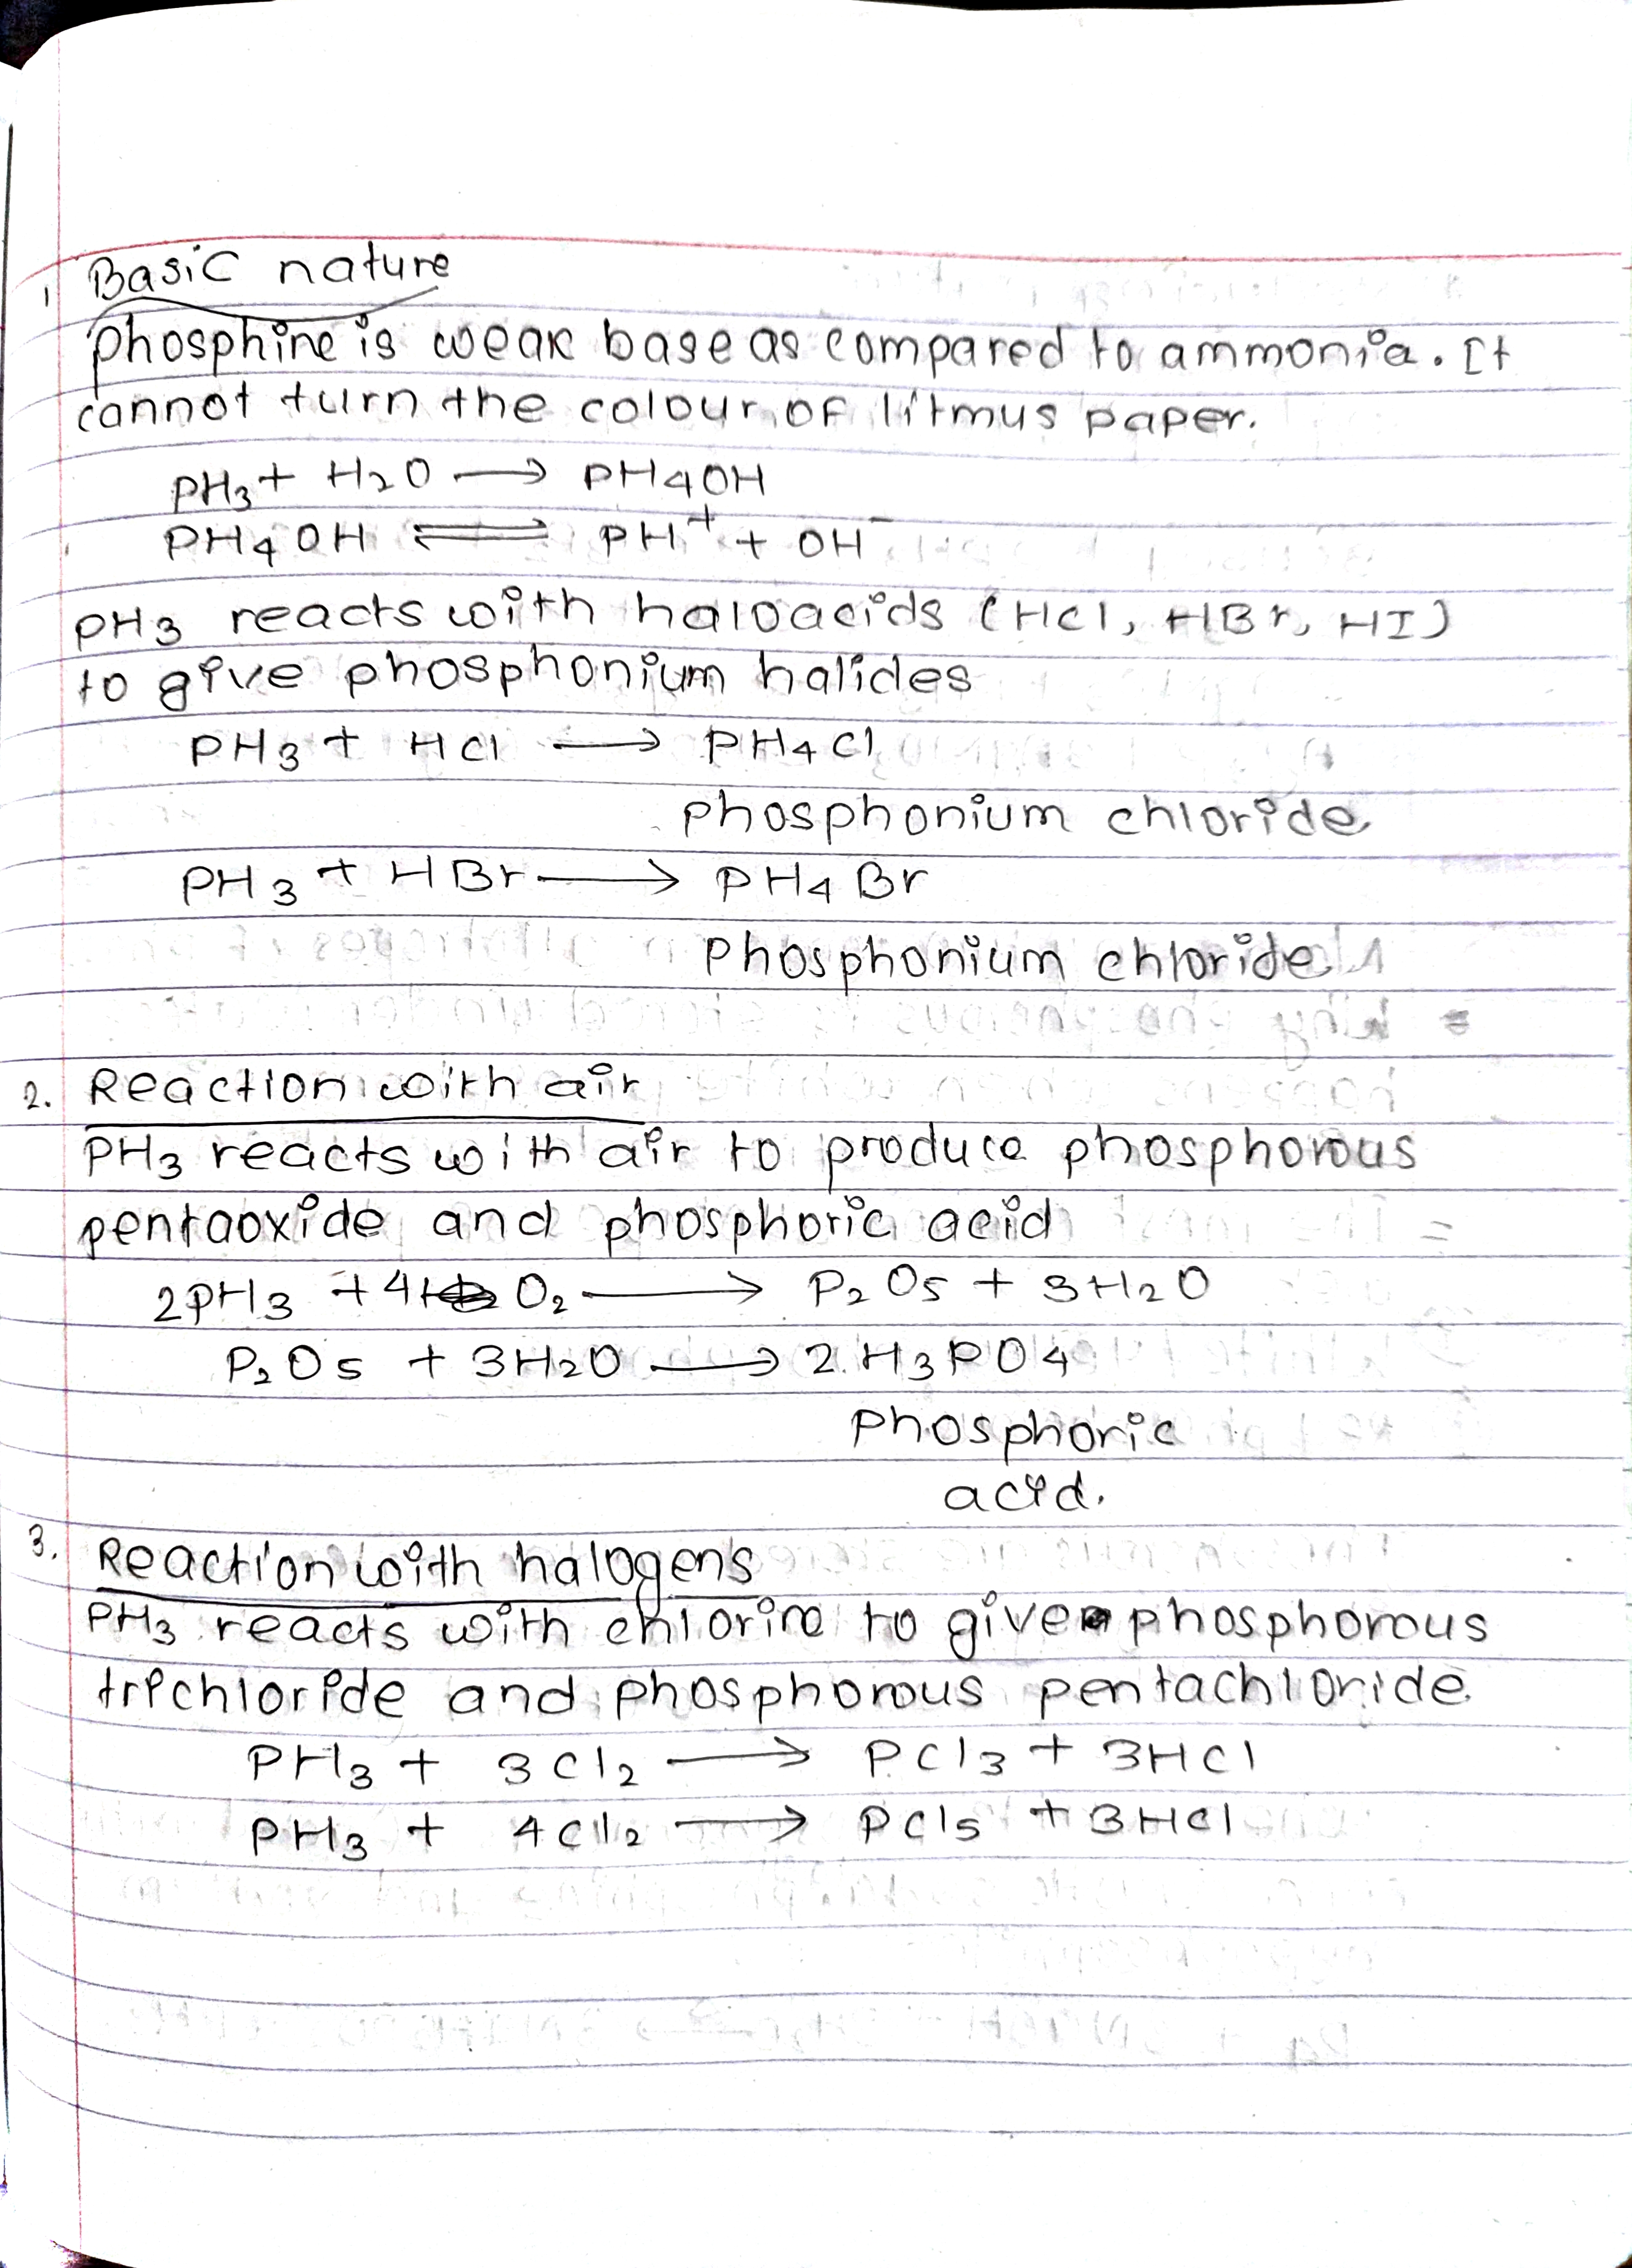 1 Basic nature
phosphine is weak base as compared to ammonia. It
cannot turn the colour of litmus paper.
PH3 + H2O ⟶ PH4OH
PH4OH ⇌ PH⁺ + OH⁻
PH3 reacts with haloacids (HCl, HBr, HI)
to give phosphonium halides
PH3 + HCl ⟶ PH4Cl
phosphonium chloride
PH3 + HBr ⟶ PH4Br
Phosphonium chloride
2. Reaction with air
PH3 reacts with air to produce phosphorous
pentaoxide and phosphoric acid
2PH3 + 4O2 ⟶ P2O5 + 3H2O
P2O5 + 3H2O ⟶ 2.H3PO4
Phosphoric
acid.
3. Reaction with halogens
PH3 reacts with chlorine to give phosphorous
trichloride and phosphorous pentachloride
PH3 + 3Cl2 ⟶ PCl3 + 3HCl
PH3 + 4Cl2 ⟶ PCl5 + 3HCl